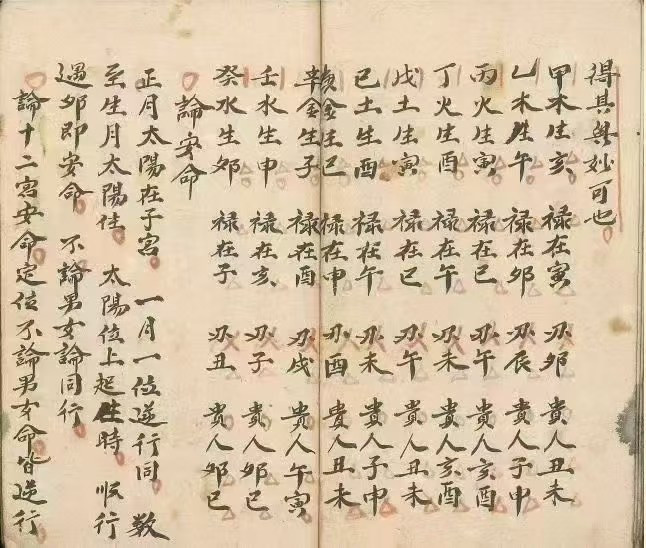 得其奥妙可也
甲木生亥 禄在寅 刃卯 貴人丑未
乙木生午 禄在卯 刃辰 貴人子申
丙火生寅 禄在巳 刃午 貴人亥酉
丁火生酉 禄在午 刃未 貴人亥酉
戊土生寅 禄在巳 刃午 貴人丑未
巳土生酉 禄在午 刃未 貴人子申
庚金生巳 禄在申 刃酉 貴人丑未
辛金生子 禄在酉 刃戌 貴人午寅
壬水生申 禄在亥 刃子 貴人卯巳
癸水生卯 禄在子 刃丑 貴人卯巳
論安命
正月太陽在子宮 一月一位逆行同 数
至生月太陽住 太陽位上起生時 順行
遇卯即安命 不論男女論同行
論十二宮安命定位不論男女命皆逆行